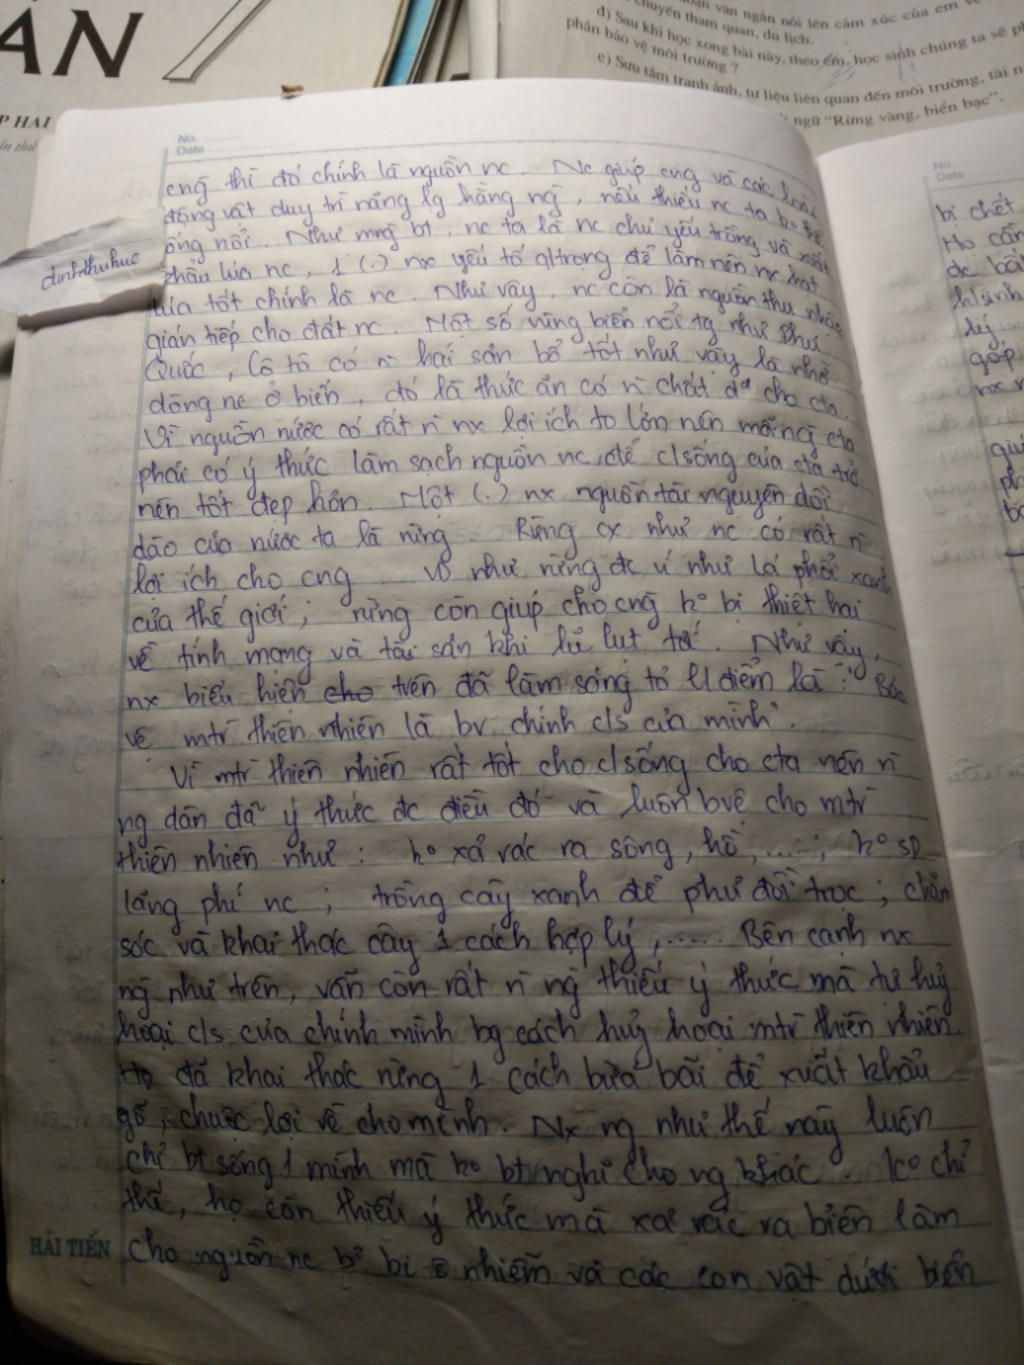 ÁN
P HAI
văn ngắn nói lên cảm xúc của em về
chuyến tham quan, du lịch.
d) Sau khi học xong bài này, theo em, học sinh chúng ta sẽ
phần bảo vệ môi trường ?
e) Sưu tầm tranh ảnh, tư liệu liên quan đến môi trường, tài
ngữ "Rừng vàng, biển bạc".
No.
Date
cng thì đó chính là nguồn nc. Nc giúp cng và các loài
động vật duy trì năng lg hằng ng, nếu thiếu nc ta ko thể
ống nổi. Như mng bt, nc ta là nc chủ yếu trồng và xuất
khẩu lúa nc, 1 (.) nx yếu tố qtrọng để làm nên nx hạt
lúa tốt chính là nc. Như vậy, nc còn là nguồn thu nhập
gián tiếp cho đất nc. Một số vùng biển nổi tg như Phú
Quốc, Cô tô có n hải sản bổ tốt như vậy là nhờ
dòng nc ở biển, đó là thức ăn có n chất d² cho cta.
Vì nguồn nước có rất n nx lợi ích to lớn nên mỗi ng cta
phải có ý thức làm sạch nguồn nc, để c/sống của cta trở
nên tốt đẹp hơn. Một (.) nx nguồn tài nguyên dồi
dào của nước ta là rừng. Rừng cx như nc có rất n
lợi ích cho cng như rừng đc ví như lá phổi xanh
của thế giới; rừng còn giúp cho cng ko bị thiệt hại
về tính mạng và tài sản khi lũ lụt tới. Như vậy,
nx biểu hiện cho trên đã làm sáng tỏ l/điểm là: "Bảo
vệ mtr thiên nhiên là bv chính c/s của mình".
Vì mtr thiên nhiên rất tốt cho c/sống cho cta nên n
ng dân đã ý thức đc điều đó và luôn bvệ cho mtr
thiên nhiên như: ko xả rác ra sông, hồ,....; ko sd
lãng phí nc; trồng cây xanh để phủ đồi trọc; chăm
sóc và khai thác cây 1 cách hợp lý,..... Bên cạnh nx
ng như trên, vẫn còn rất n ng thiếu ý thức mà tự huỷ
hoại c/s của chính mình bg cách huỷ hoại mtr thiên nhiên.
Họ đã khai thác rừng 1 cách bừa bãi để xuất khẩu
gỗ, chuộc lợi về cho mình. Nx ng như thế này luôn
chỉ bt sống 1 mình mà ko bt nghĩ cho ng khác. Ko chỉ
thế, họ còn thiếu ý thức mà xả rác ra biển làm
cho nguồn nc bị ô nhiễm và các con vật dưới biển
HẢI TIẾN
dinhthuhuc
No.
Date
bị chết
Họ cần
đc bả
h/sinh
lý
góp
nx